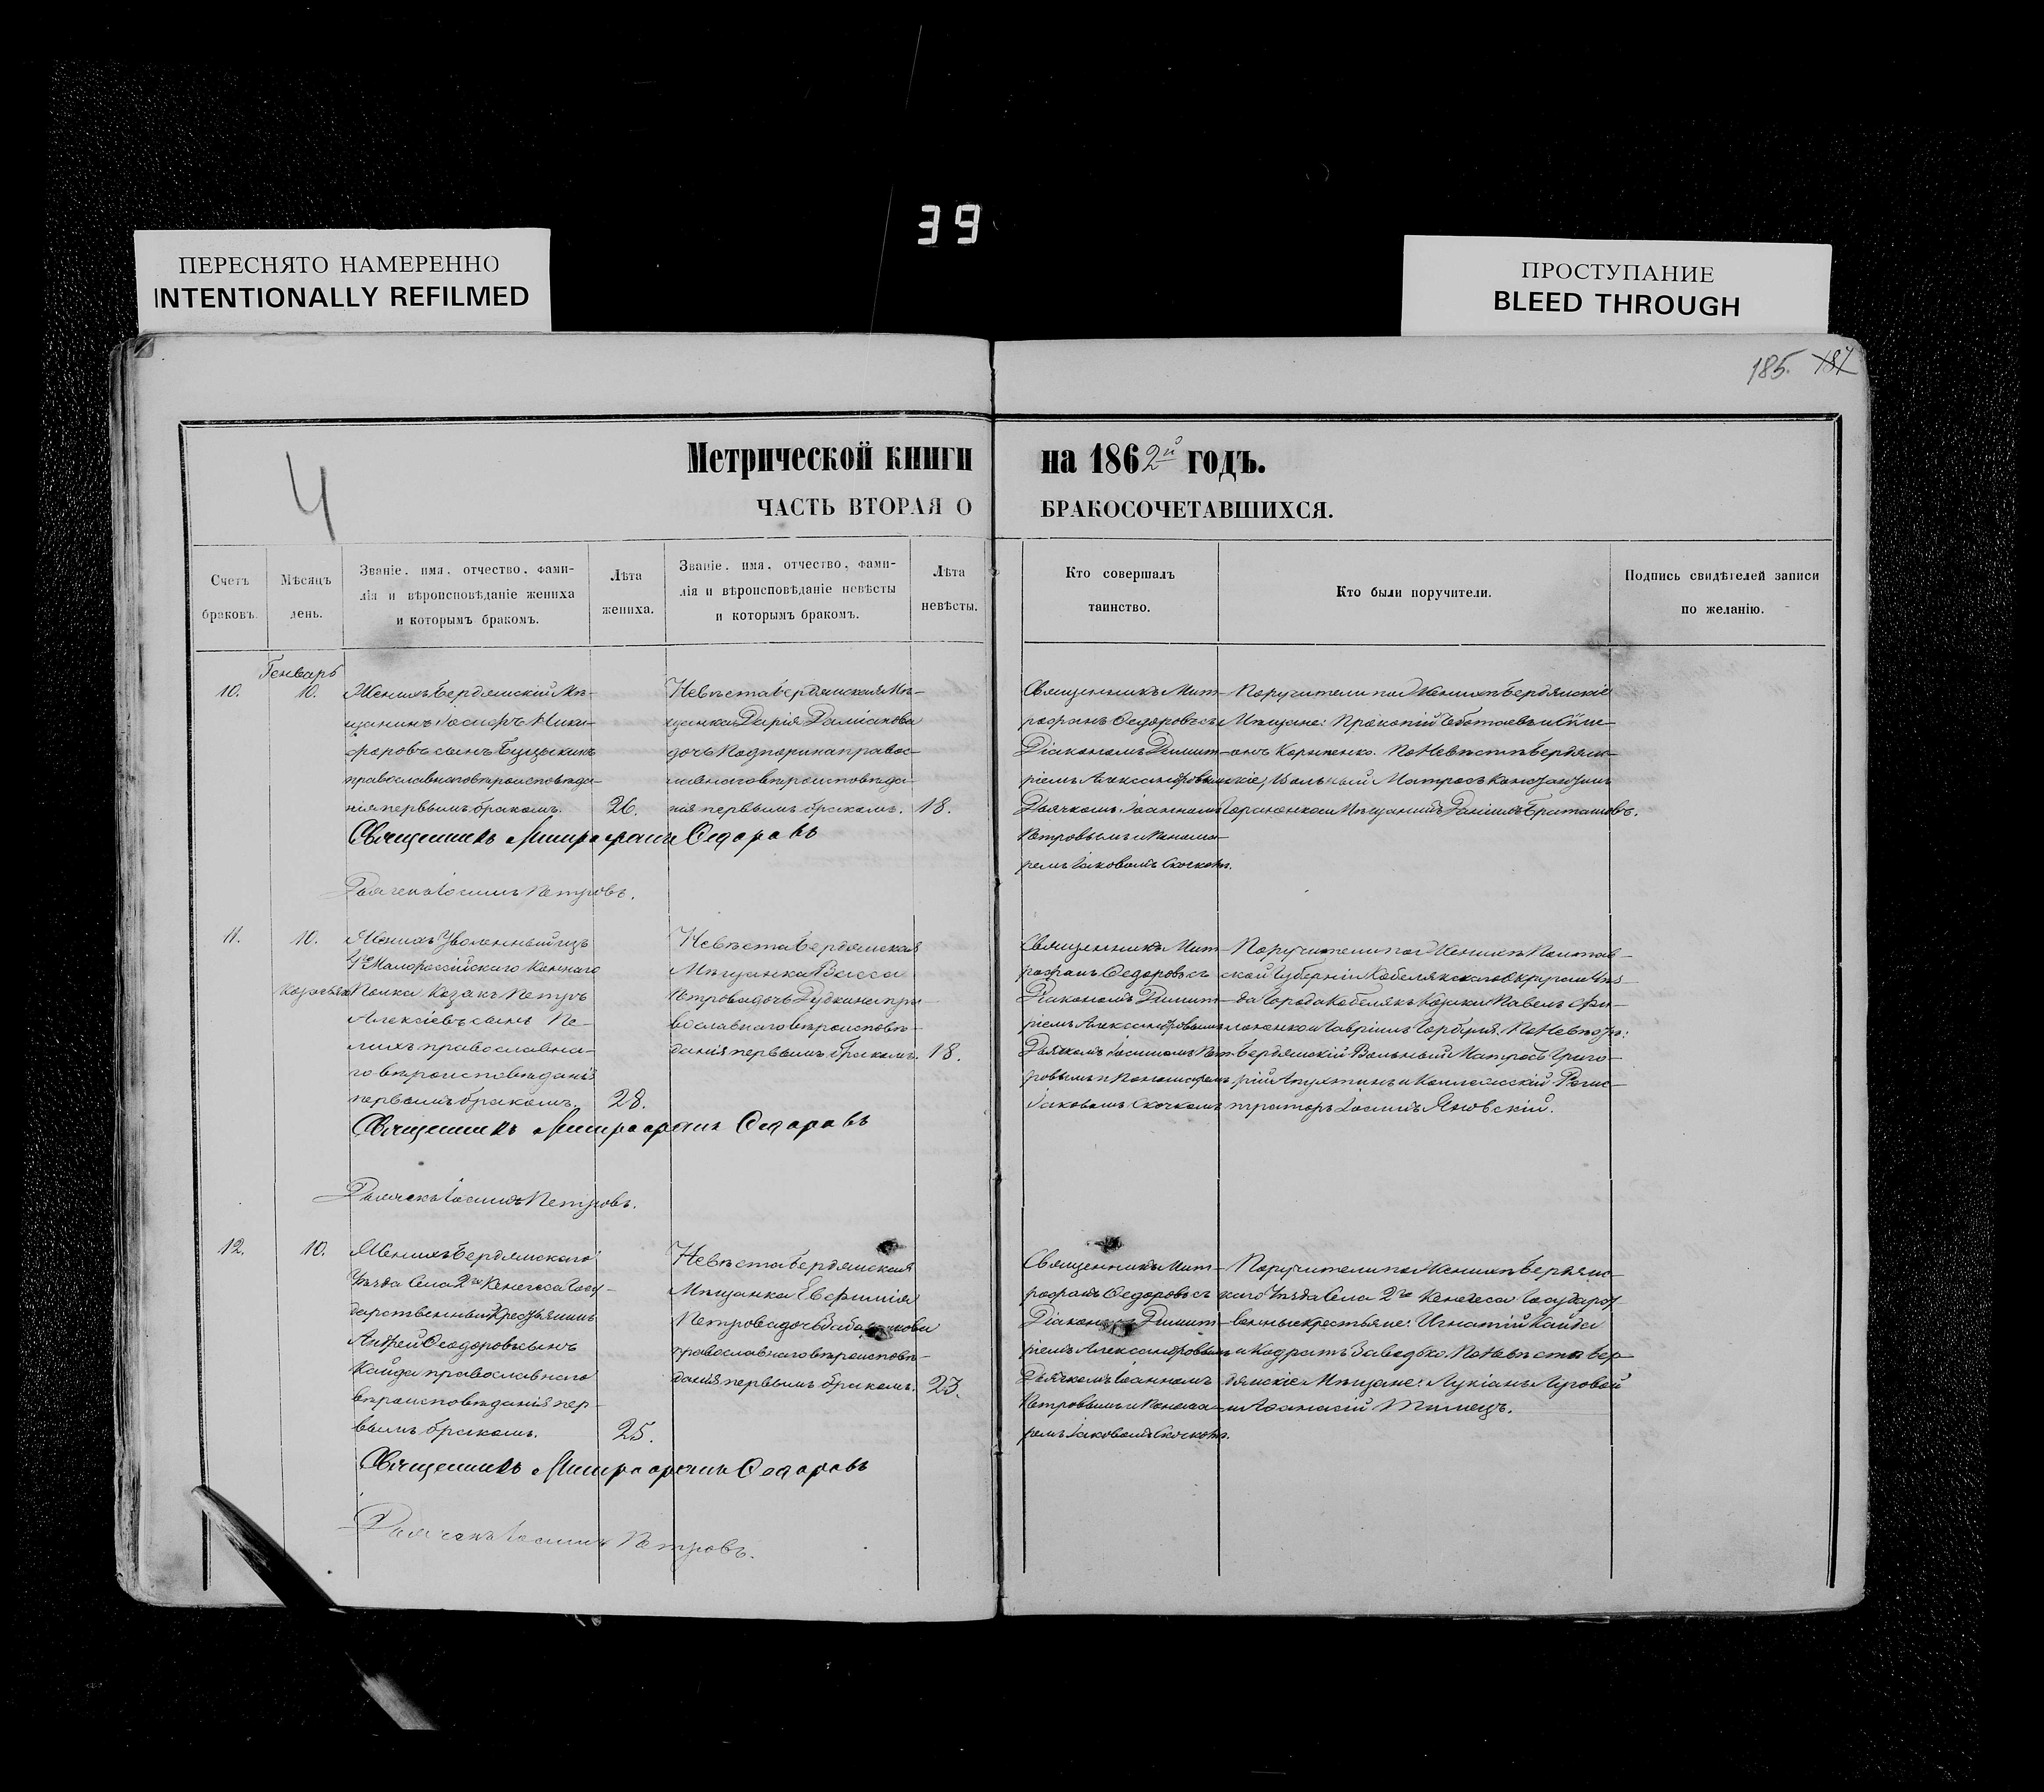 39
ПЕРЕСНЯТО НАМЕРЕННО
INTENTIONALLY REFILMED
ПРОСТУПАНИЕ
BLEED THROUGH
185. 187
4
Метрической книги на 1862й годъ.
ЧАСТЬ ВТОРАЯ О БРАКОСОЧЕТАВШИХСЯ.
Счетъ
браковъ.
Мѣсяцъ
день.
Званіе, имя, отчество, фами-
лія и вѣроисповѣданіе жениха
и которымъ бракомъ.
Лѣта
жениха.
Званіе, имя, отчество, фами-
лія и вѣроисповѣданіе невѣсты
и которымъ бракомъ.
Лѣта
невѣсты.
Кто совершалъ
таинство.
Кто были поручители.
Подпись свидѣтелей записи
по желанію.
Генварь
10.
10.
Женихъ Бердянскій Мѣ-
щанинъ Іосифъ Ники-
форовъ сынъ
православнаго вѣроисповѣда-
нія первымъ бракомъ.
26.
Невѣста Бердянская Мѣ-
щанка Дарія Даміанова
дочь Подпорина правос-
лавнаго вѣроисповѣда-
нія первымъ бракомъ.
18.
Священникъ Мит-
рофанъ Федоровъ съ
Діакономъ Димит-
ріемъ Александровымъ
Дьячкомъ Іоанномъ
Петровымъ и Понома-
ремъ Іаковомъ Скочкомъ.
Поручители по Женихѣ Бердянскіе
Мѣщане: Прокопій и
Корниенко. По Невѣстѣ Бердян-
скіе, Вольный Матросъ
и Мѣщанинъ Даніилъ
Священникъ Митрофанъ Федоровъ
Дьячекъ Іоаннъ Петровъ.
11.
10.
Женихъ Уволенный изъ
1го Малороссійскаго Коннаго
Козачьяго Полка Козакъ Петръ
Алексіевъ сынъ Пе-
лихъ православна-
го вѣроисповѣданія
первымъ бракомъ.
28.
Невѣста Бердянская
Мѣщанка Васса
Петрова дочь Дудкина пра-
вославнаго вѣроисповѣ-
данія первымъ бракомъ.
18.
Священникъ Мит-
рофанъ Федоровъ съ
Діакономъ Димит-
ріемъ Александровымъ
Дьячкомъ Іоанномъ Пет-
ровымъ и Пономаремъ
Іаковомъ Скочкомъ
Поручители по Женихѣ Полтав-
ской Губерніи Кобелякскаго
Города Кобелякъ Козаки Павелъ Фи-
лоненко и Гавріилъ Горбуля. По Невѣстѣ:
Бердянскій Вольный Матросъ Григо-
рій Апухтинъ и Коллежскій Регис-
траторъ Іоаннъ Яновскій.
Священникъ Митрофанъ Федоровъ
Дьячекъ Іоаннъ Петровъ.
12.
10.
Женихъ Бердянскаго
Уѣзда Села 2го Кенегеса Госу-
дарственный Крестьянинъ
Андрей Феодоровъ сынъ
Кайда православнаго
вѣроисповѣданія пер-
вымъ бракомъ.
25.
Невѣста Бердянская
Мѣщанка Евфимія
Петрова дочь
православнаго вѣроисповѣ-
данія первымъ бракомъ.
23.
Священникъ Мит-
рофанъ Федоровъ съ
Діакономъ Димит-
ріемъ Александровымъ
Дьячкомъ Іоанномъ
Петровымъ и Понома-
ремъ Іаковомъ Скочкомъ.
Поручители по Женихѣ Бердянс-
каго Уѣзда Села 2го Кенегеса Государст-
венные крестьяне: Игнатій Кайда
и Кодратъ Заводько. По Невѣстѣ Бер-
дянскіе Мѣщане: Лукіанъ Луговой
и Афанасій
Священникъ Митрофанъ Федоровъ
Дьячекъ Іоаннъ Петровъ.